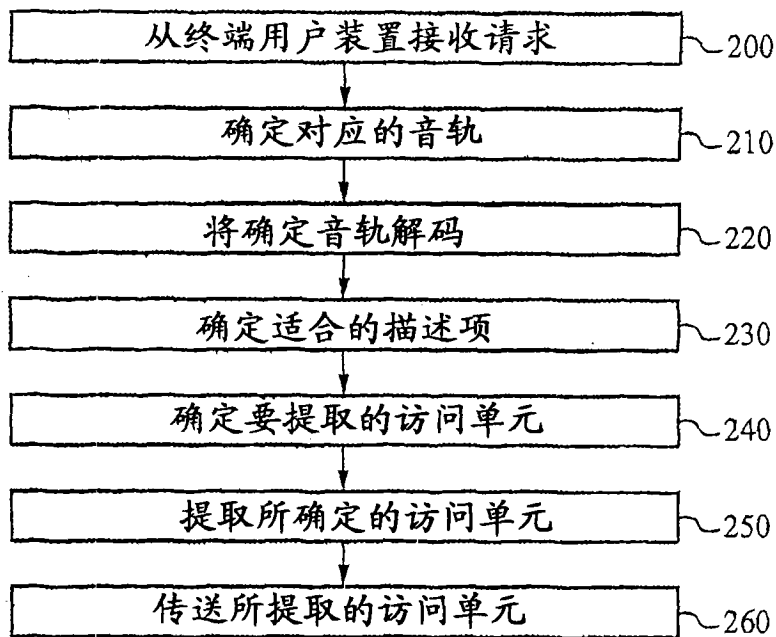 从终端用户装置接收请求 200
确定对应的音轨 210
将确定音轨解码 220
确定适合的描述项 230
确定要提取的访问单元 240
提取所确定的访问单元 250
传送所提取的访问单元 260